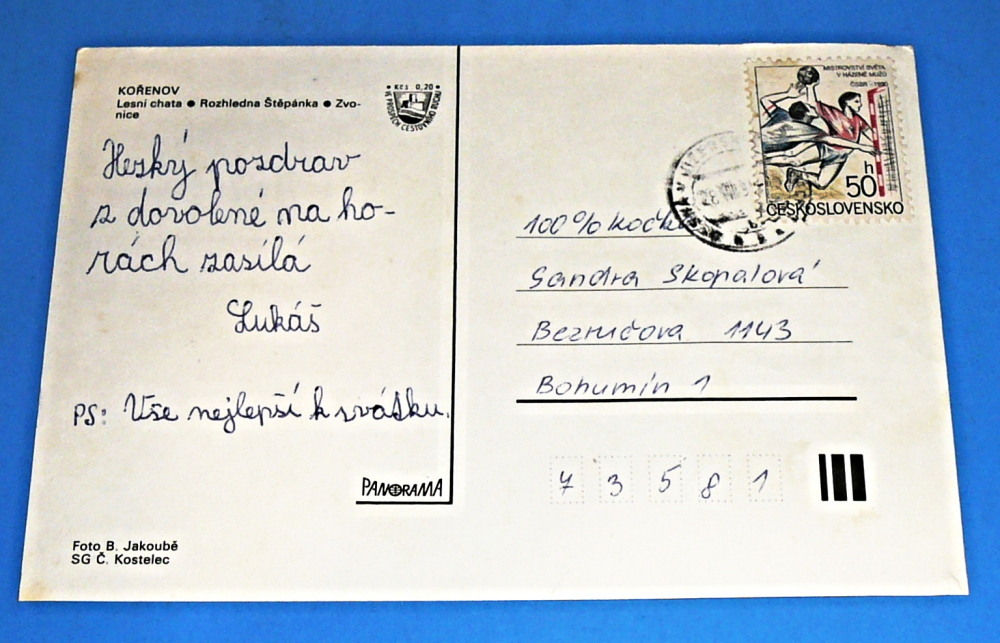 KOŘENOV
Lesní chata ● Rozhledna Štěpánka ● Zvo-
nice
Kčs 0,20
VE PROSPĚCH CESTOVNÍHO RUCHU
Hezký pozdrav
z dovolené na ho-
rách zasílá
Lukáš
PS: Vše nejlepší k svátku.
PANORAMA
Foto B. Jakoubě
SG Č. Kostelec
MISTROVSTVÍ SVĚTA
V HÁZENÉ MUŽŮ
ČSSR - 1990
50 h
ČESKOSLOVENSKO
100% kočka
Sandra Skopalová
Bezručova 1143
Bohumín 1
7 3 5 8 1